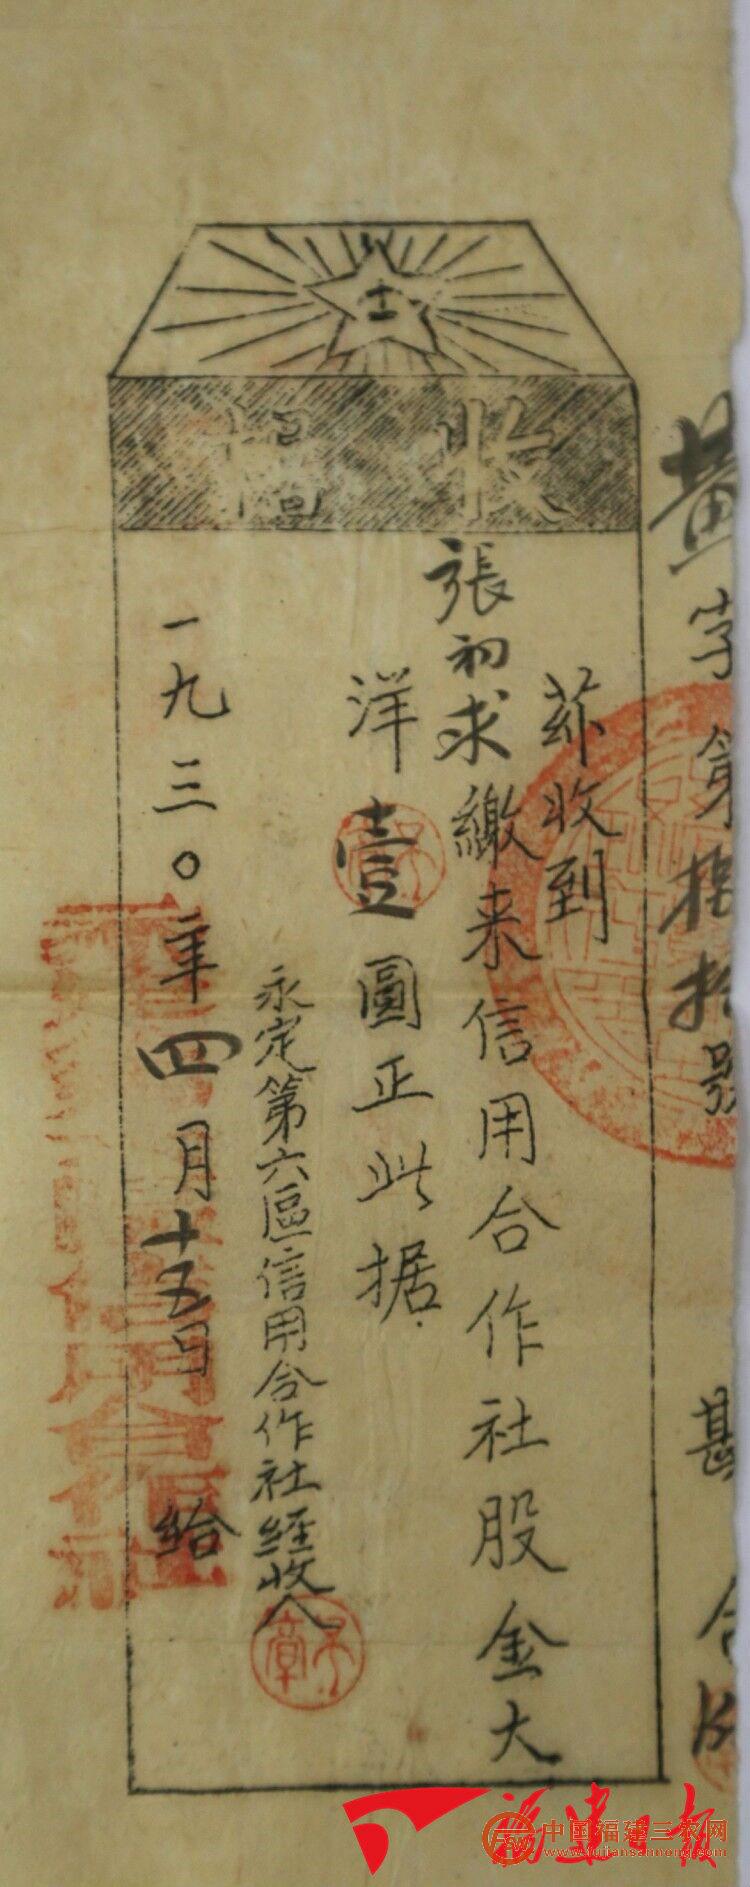 收據
茲收到
張初求繳来信用合作社股金大
洋壹圓正此据.
永定第六區信用合作社經收人
一九三〇年四月十五日給
字第拾號
福建日报
中国福建三农网
www.fujiansannong.com